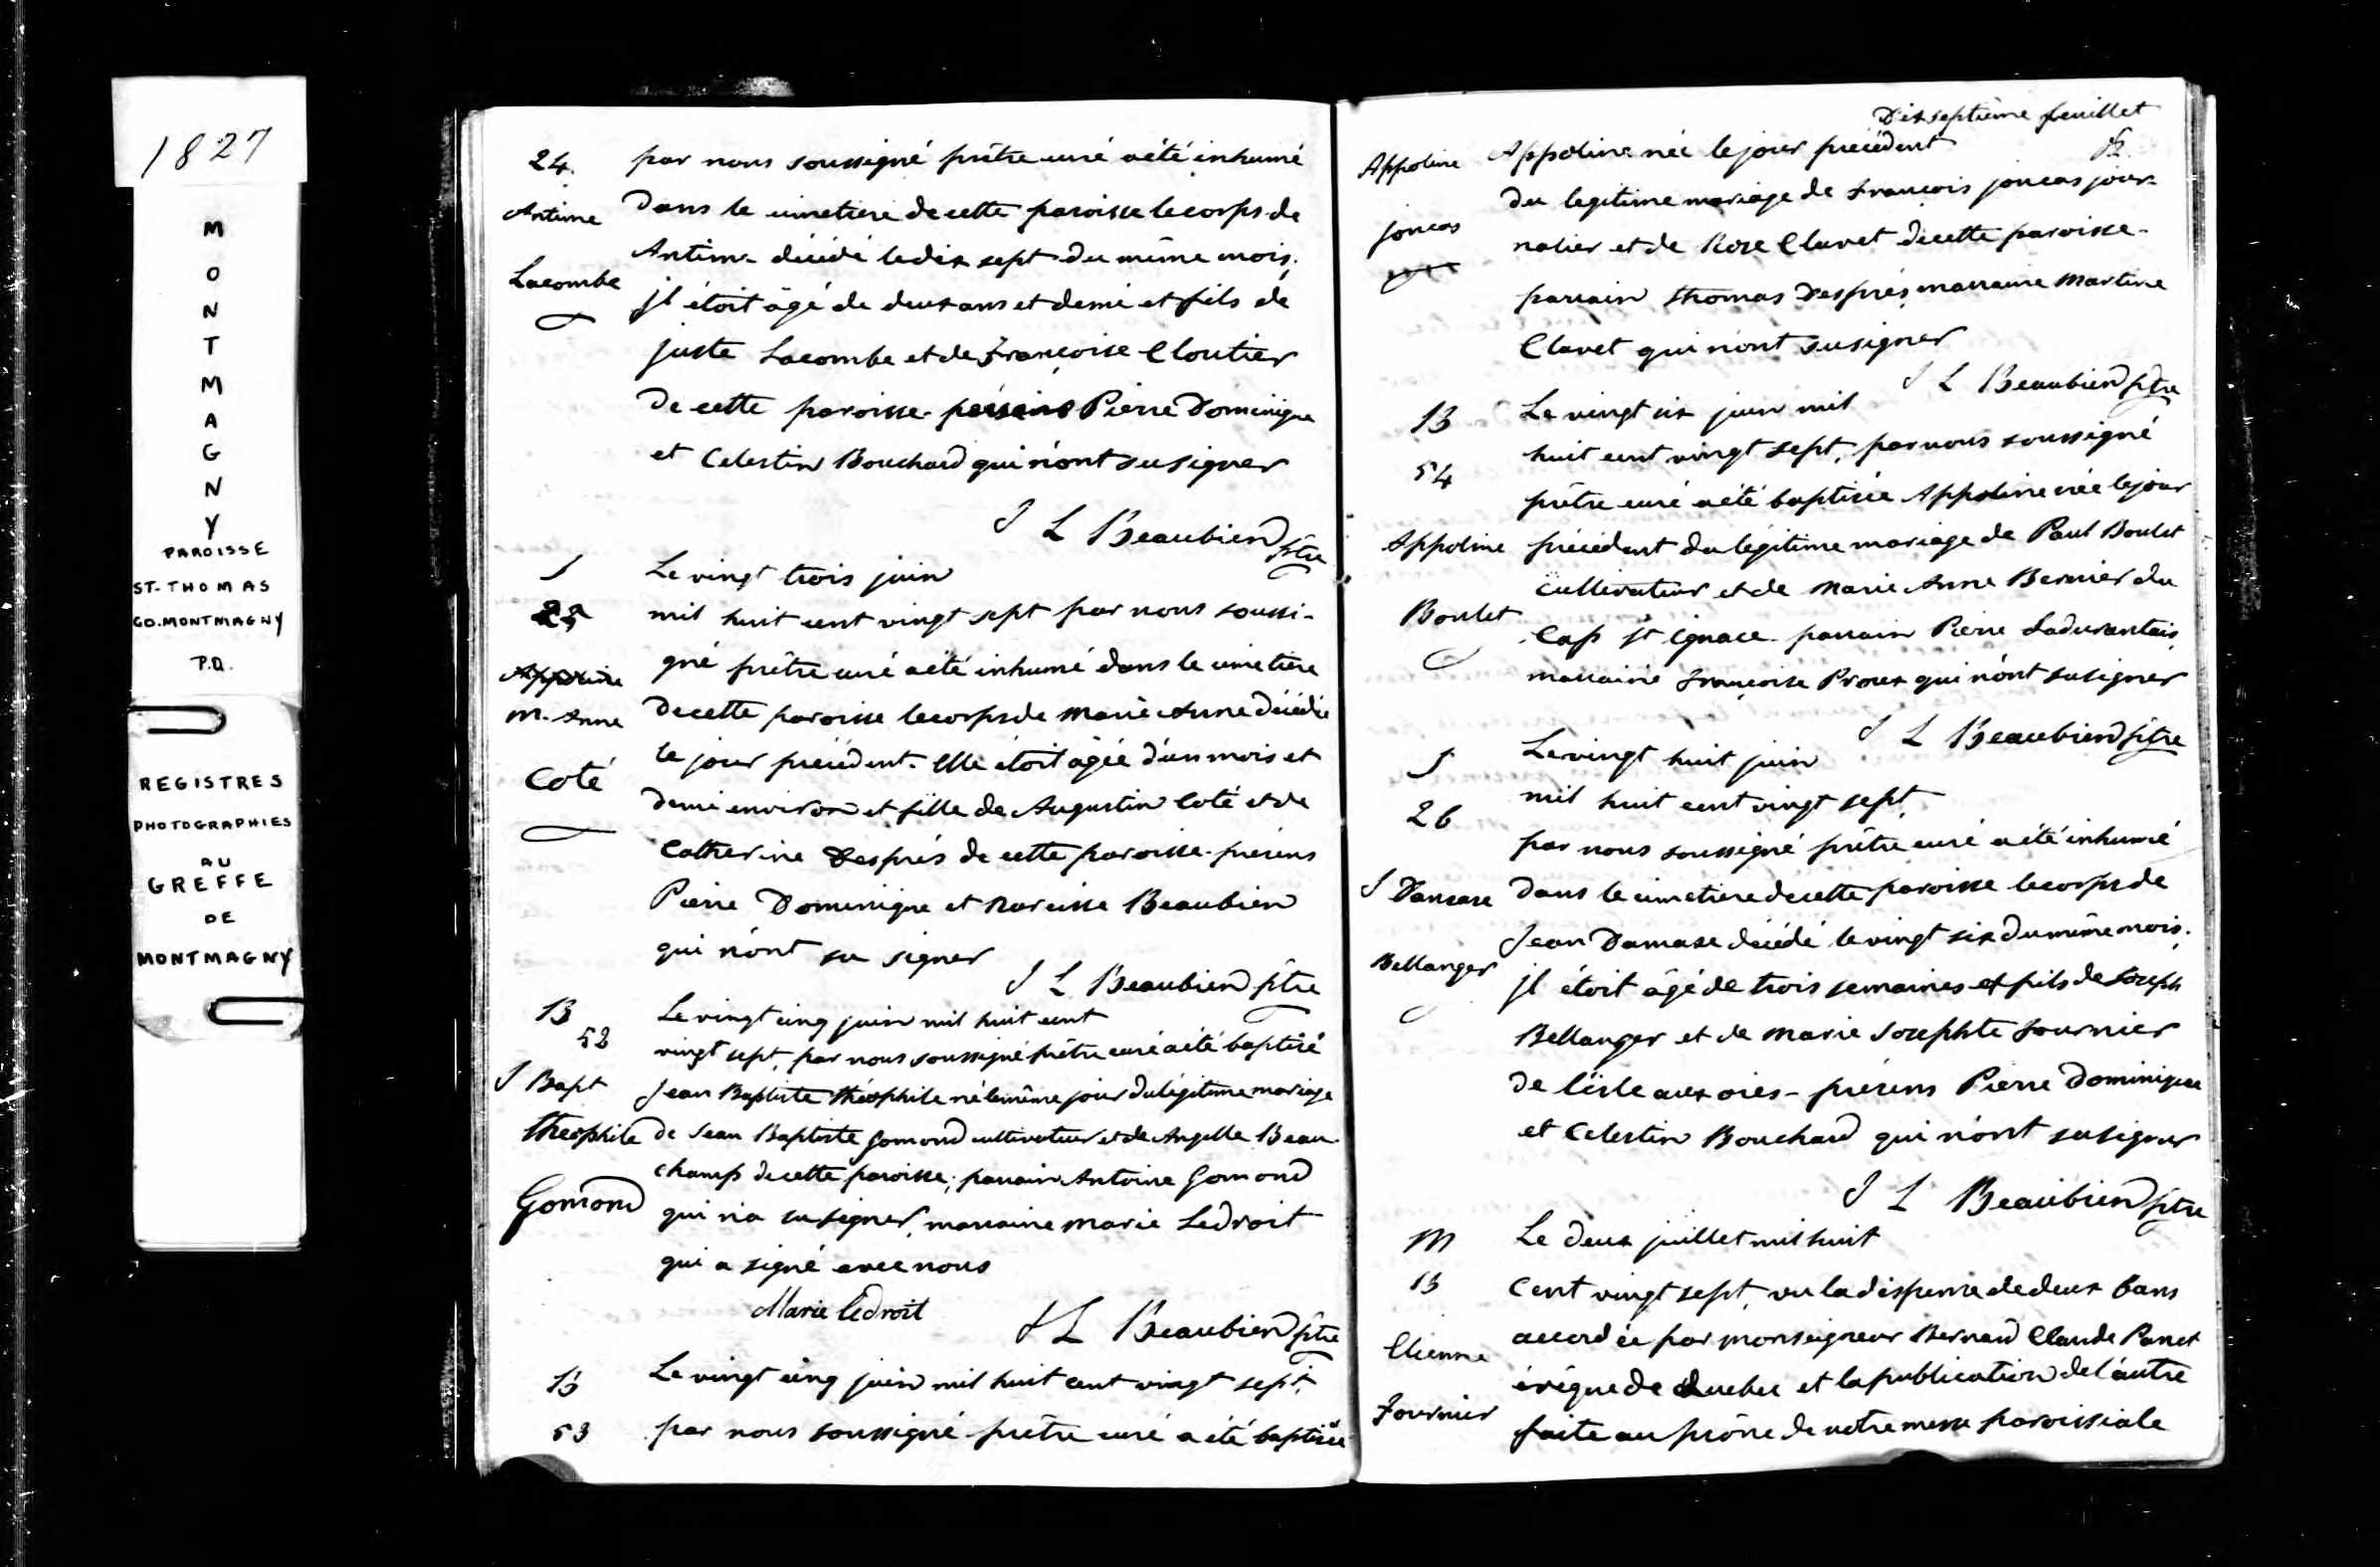 1827
MONTMAGNY
PAROISSE
ST-THOMAS
CO. MONTMAGNY
P.Q.
REGISTRES
PHOTOGRAPHIES
AU
GREFFE
DE
MONTMAGNY
24.
Antime
Lacombe
par nous soussigné prêtre curé a été inhumé
Dans le cimetiere de cette paroisse le corps de
Antime décédé le dix sept du même mois.
jl étoit âgé de deux ans et demi et fils de
juste Lacombe et de Francoise Cloutier
De cette paroisse présens Pierre Dominique
et Celestin Bouchard qui n'ont su signer
J L Beaubien ptre
S
25
Appoline
M. Anne
Coté
Le vingt trois juin
mil huit cent vingt sept par nous soussi-
gné prêtre curé a été inhumé dans le cimetiere
De cette paroisse le corps de Marie Anne décédée
le jour precédent. Elle étoit âgée d'un mois et
demi environ et fille de Augustin Coté et de
Catherine Després de cette paroisse. présens
Pierre Dominique et Narcisse Beaubien
qui n'ont su signer
J L Beaubien ptre
B
52
J Bapt
theophile
Gomond
Le vingt cinq juin mil huit cent
vingt sept, par nous soussigné prêtre curé a été baptisé
Jean Baptiste théophile né le même jour du légitime mariage
de Jean Baptiste Gomond cultivateur et de Angelle Beau-
champ de cette paroisse; parrain Antoine Gomond
qui n'a su signer, marraine Marie Ledroit
qui a signé avec nous
Marie Ledroit
J L Beaubien ptre
B
53
Le vingt cinq juin mil huit cent vingt sept,
par nous soussigné prêtre curé a été baptisée
Dix septième feuillet
Appoline
joncas
Appoline née le jour precédent
du legitime mariage de Francois joncas jour-
nalier et de Rose Clavet de cette paroisse.
parrain thomas Després, marraine Martine
Clavet qui n'ont su signer
J L Beaubien ptre
B
54
Appoline
Boulet
Le vingt six juin mil
huit cent vingt sept, par nous soussigné
prêtre curé a été baptisée Appoline née le jour
précédent du légitime mariage de Paul Boulet
cultivateur et de Marie Anne Bernier du
Cap St Ignace. parrain Pierre Ladurantais,
marraine Francoise Proux qui n'ont su signer
J L Beaubien ptre
S
26
J Damase
Bellanger
Le vingt huit juin
mil huit cent vingt sept,
par nous soussigné prêtre curé a été inhumé
Dans le cimetiere de cette paroisse le corps de
Jean Damase décédé le vingt six du même mois.
jl étoit âgé de trois semaines et fils de Joseph
Bellanger et de Marie Josephte Fournier
de l'isle aux oies - présens Pierre Dominique
et Celestin Bouchard qui n'ont su signer
J L Beaubien ptre
M
13
Etienne
Fournier
Le deux juillet mil huit
Cent vingt sept, vu la dispense de deux bans
accordée par Monseigneur Bernard Claude Panet
évêque de Quebec et la publication de l'autre
faite au prône de notre messe paroissiale